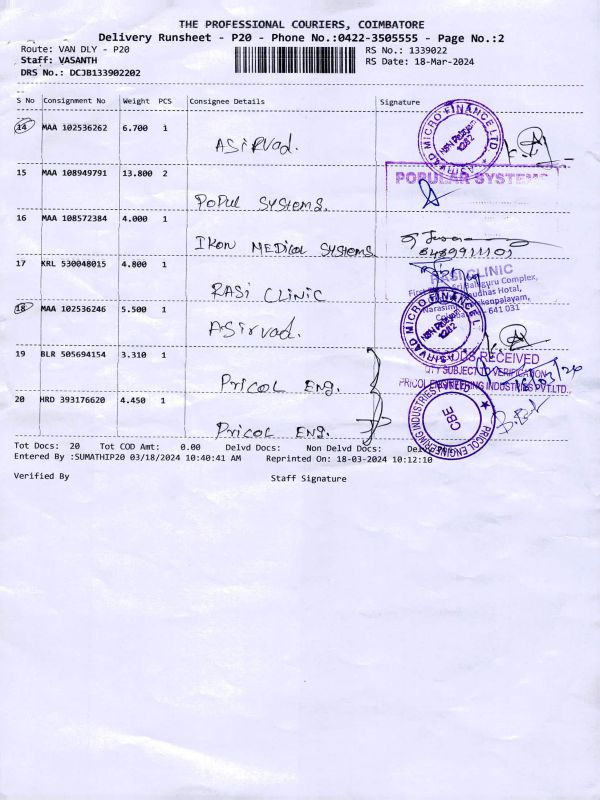 THE PROFESSIONAL COURIERS, COIMBATORE
Delivery Runsheet - P20 - Phone No.:0422-3505555 - Page No.:2
Route: VAN DLY - P20 RS No.: 1339022
Staff: VASANTH RS Date: 18-Mar-2024
DRS No.: DCJB133902202
S No Consignment No Weight PCS Consignee Details Signature
14 MAA 102536262 6.700 1
ASirvad.
ASIRVAD MICRO FINANCE LTD
15 MAA 108949791 13.800 2
POPUL SYSTEMS.
POPULAR SYSTEMS
16 MAA 108572384 4.000 1
IKON MEDICAL SYSTEMS
17 KRL 530048015 4.800 1
RASI CLINIC
RASI CLINIC
Complex,
Hotal,
641 031
18 MAA 102536246 5.500 1
ASirvad.
ASIRVAD MICRO FINANCE L
19 BLR 505694154 3.310 1
PRICOL ENG.
GOODS RECEIVED
QTY SUBJECT TO VERIFICATION
PRICOL ENGINEERING INDUSTRIES PVT.LTD.,
20 HRD 393176620 4.450 1
PRICOL ENG.
PRICOL ENGINEERING INDUSTRIES
CBE
Tot Docs: 20 Tot COD Amt: 0.00 Delvd Docs: Non Delvd Docs:
Entered By :SUMATHIP20 03/18/2024 10:40:41 AM Reprinted On: 18-03-2024 10:12:10
Verified By Staff Signature